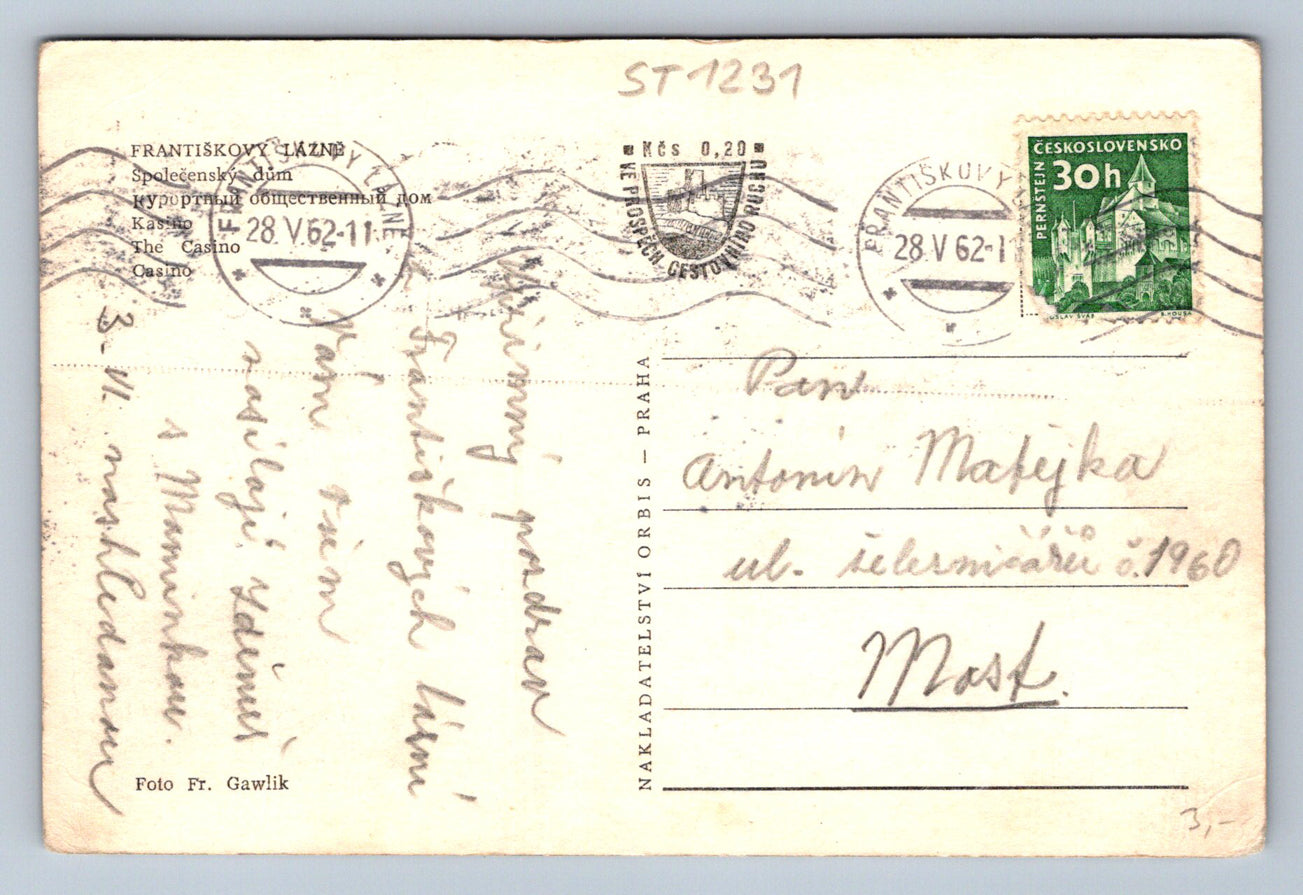 ST 1231
FRANTIŠKOVY LÁZNĚ
Společenský dům
Курортный общественный дом
Kasino
The Casino
Casino
FRANTIŠKOVY LÁZNĚ
28 V 62-11
Kčs 0,20
VE PROSPĚCH CESTOVNÍHO RUCHU
FRANTIŠKOVY
28 V 62-1
ČESKOSLOVENSKO
30h
PERNŠTEJN
Upřímný pozdrav
z Františkových lázní
Vám všem
zasílají
s Maminkou.
3. VI. nashledanou
Foto Fr. Gawlik
NAKLADATELSTVÍ ORBIS – PRAHA
Pan
Antonín Matějka
ul. šelermičářů č. 1960
Most.
3,-